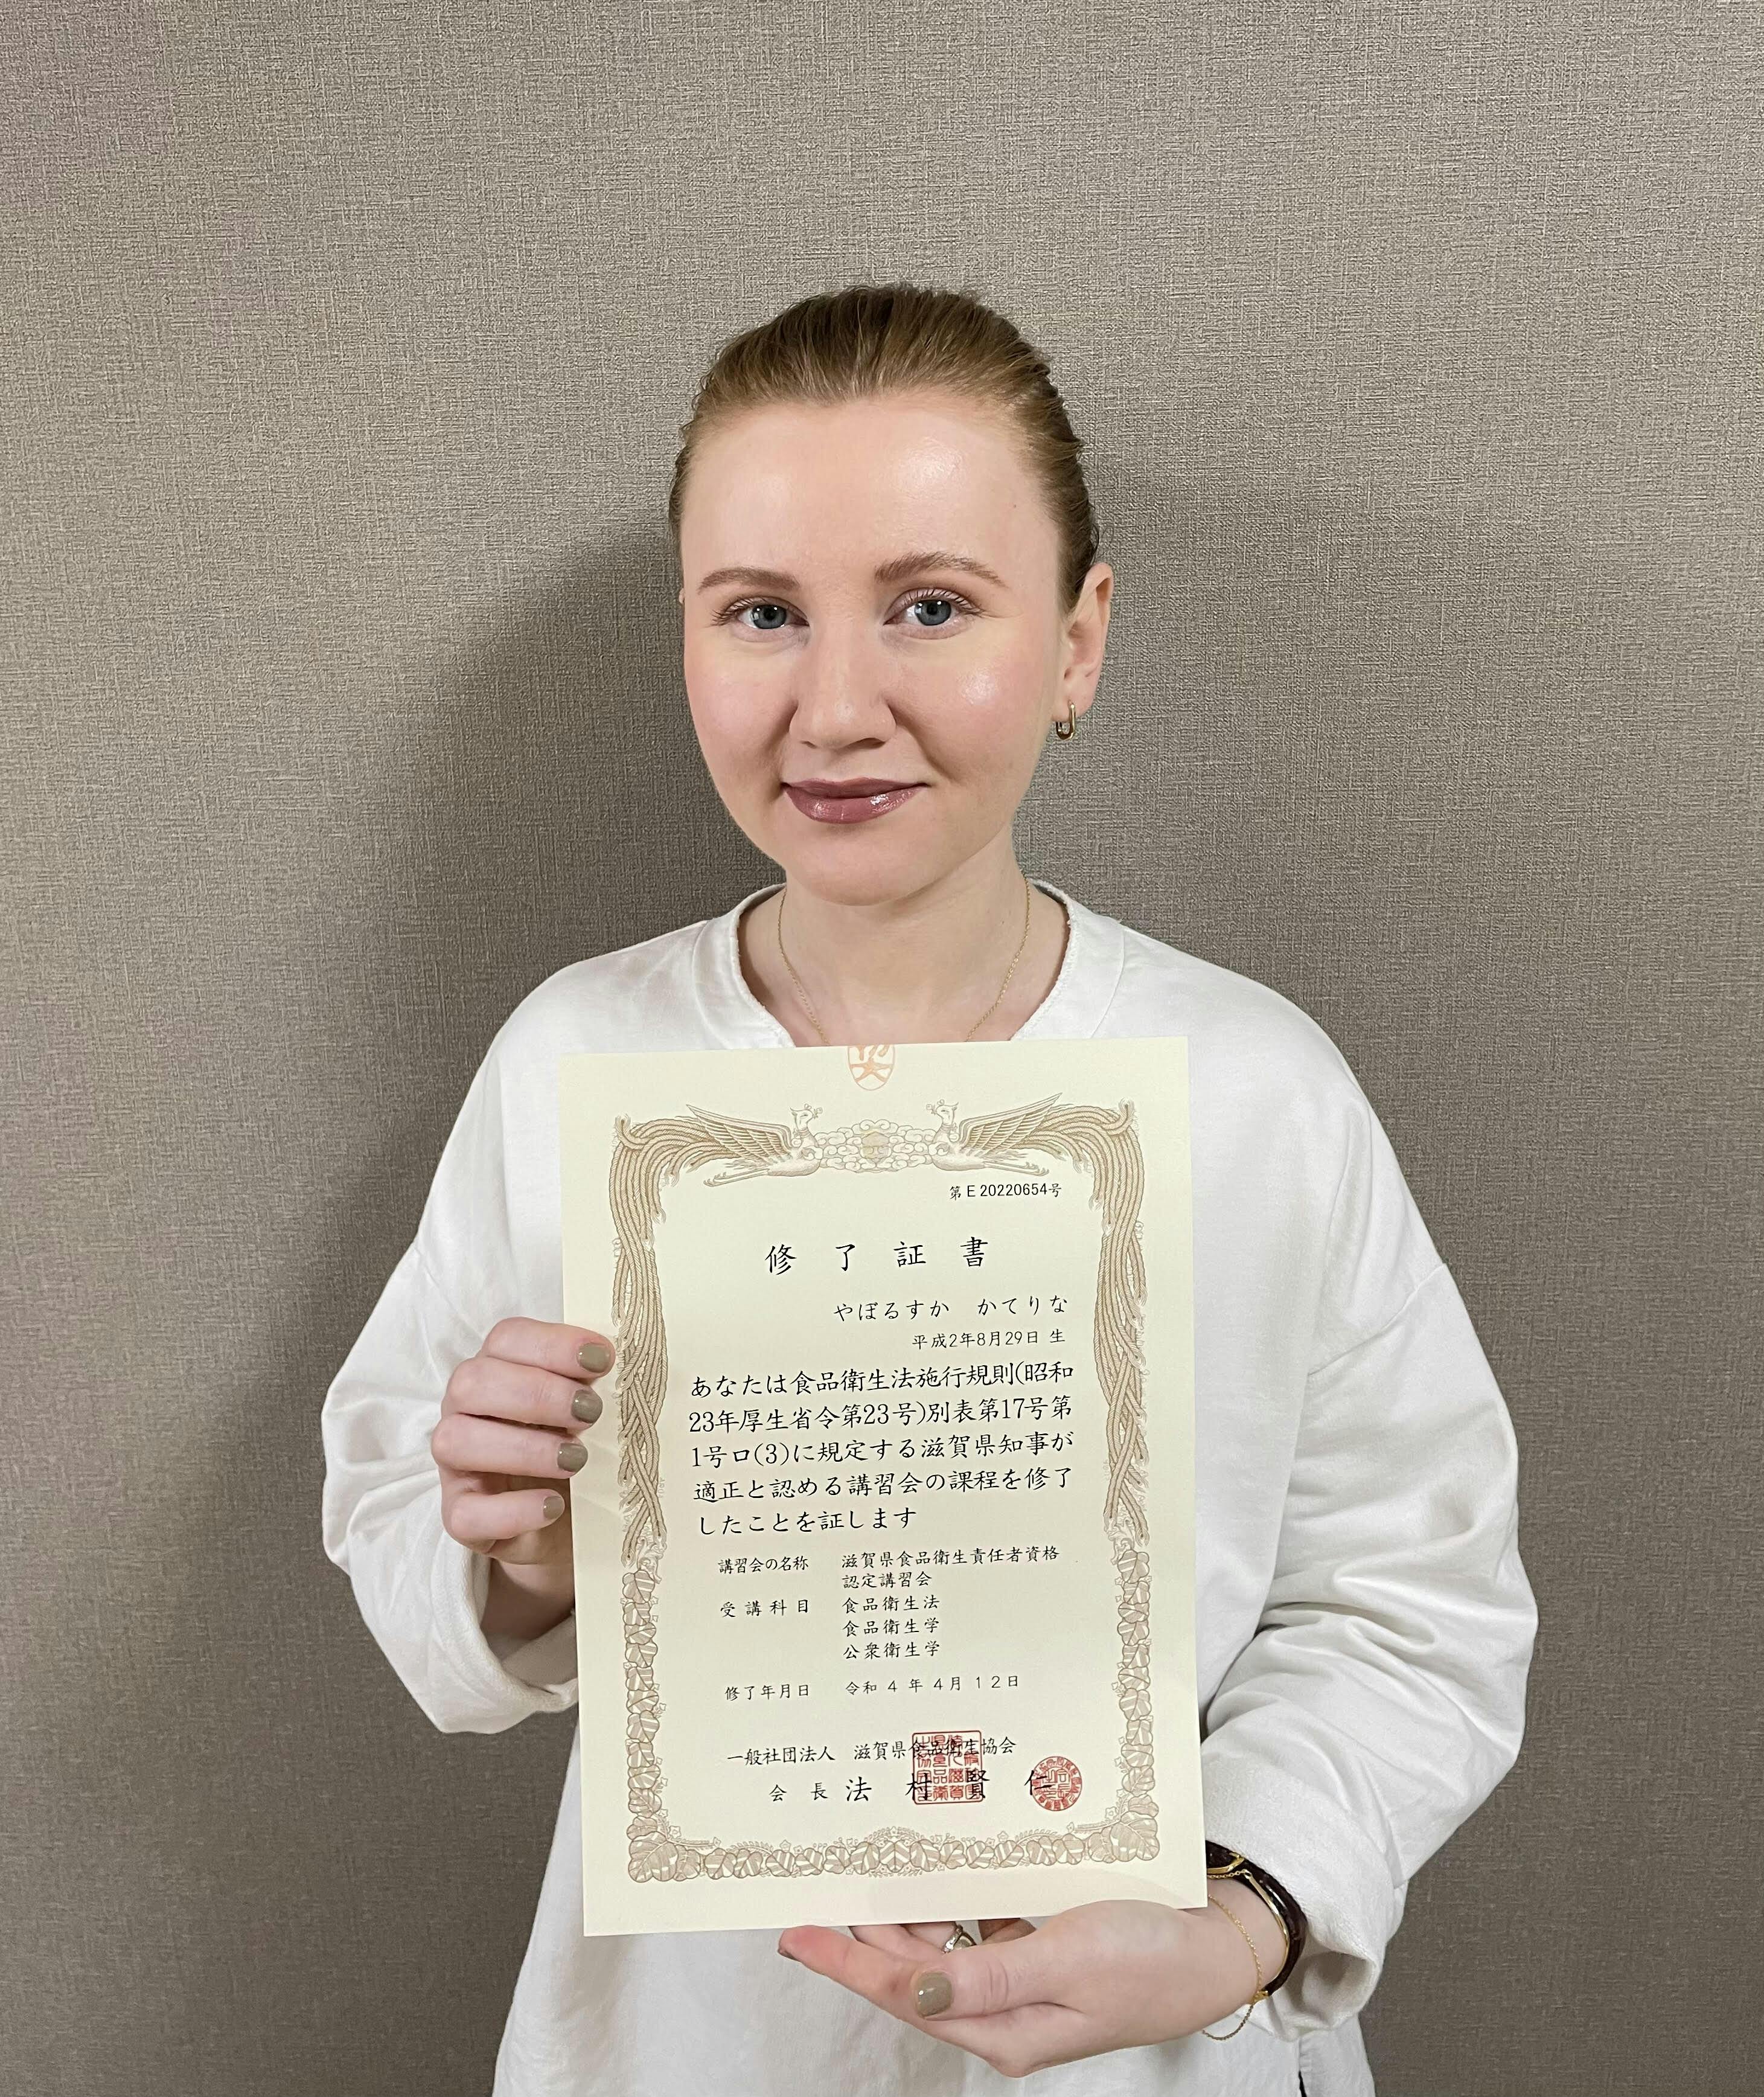 第E20220654号
修了証書
やぼるすか　かてりな
平成2年8月29日 生
あなたは食品衛生法施行規則(昭和
23年厚生省令第23号)別表第17号第
1号ロ(3)に規定する滋賀県知事が
適正と認める講習会の課程を修了
したことを証します
講習会の名称　滋賀県食品衛生責任者資格
認定講習会
受講科目　食品衛生法
食品衛生学
公衆衛生学
修了年月日　令和4年4月12日
一般社団法人　滋賀県食品衛生協会
会長 法村賢仁